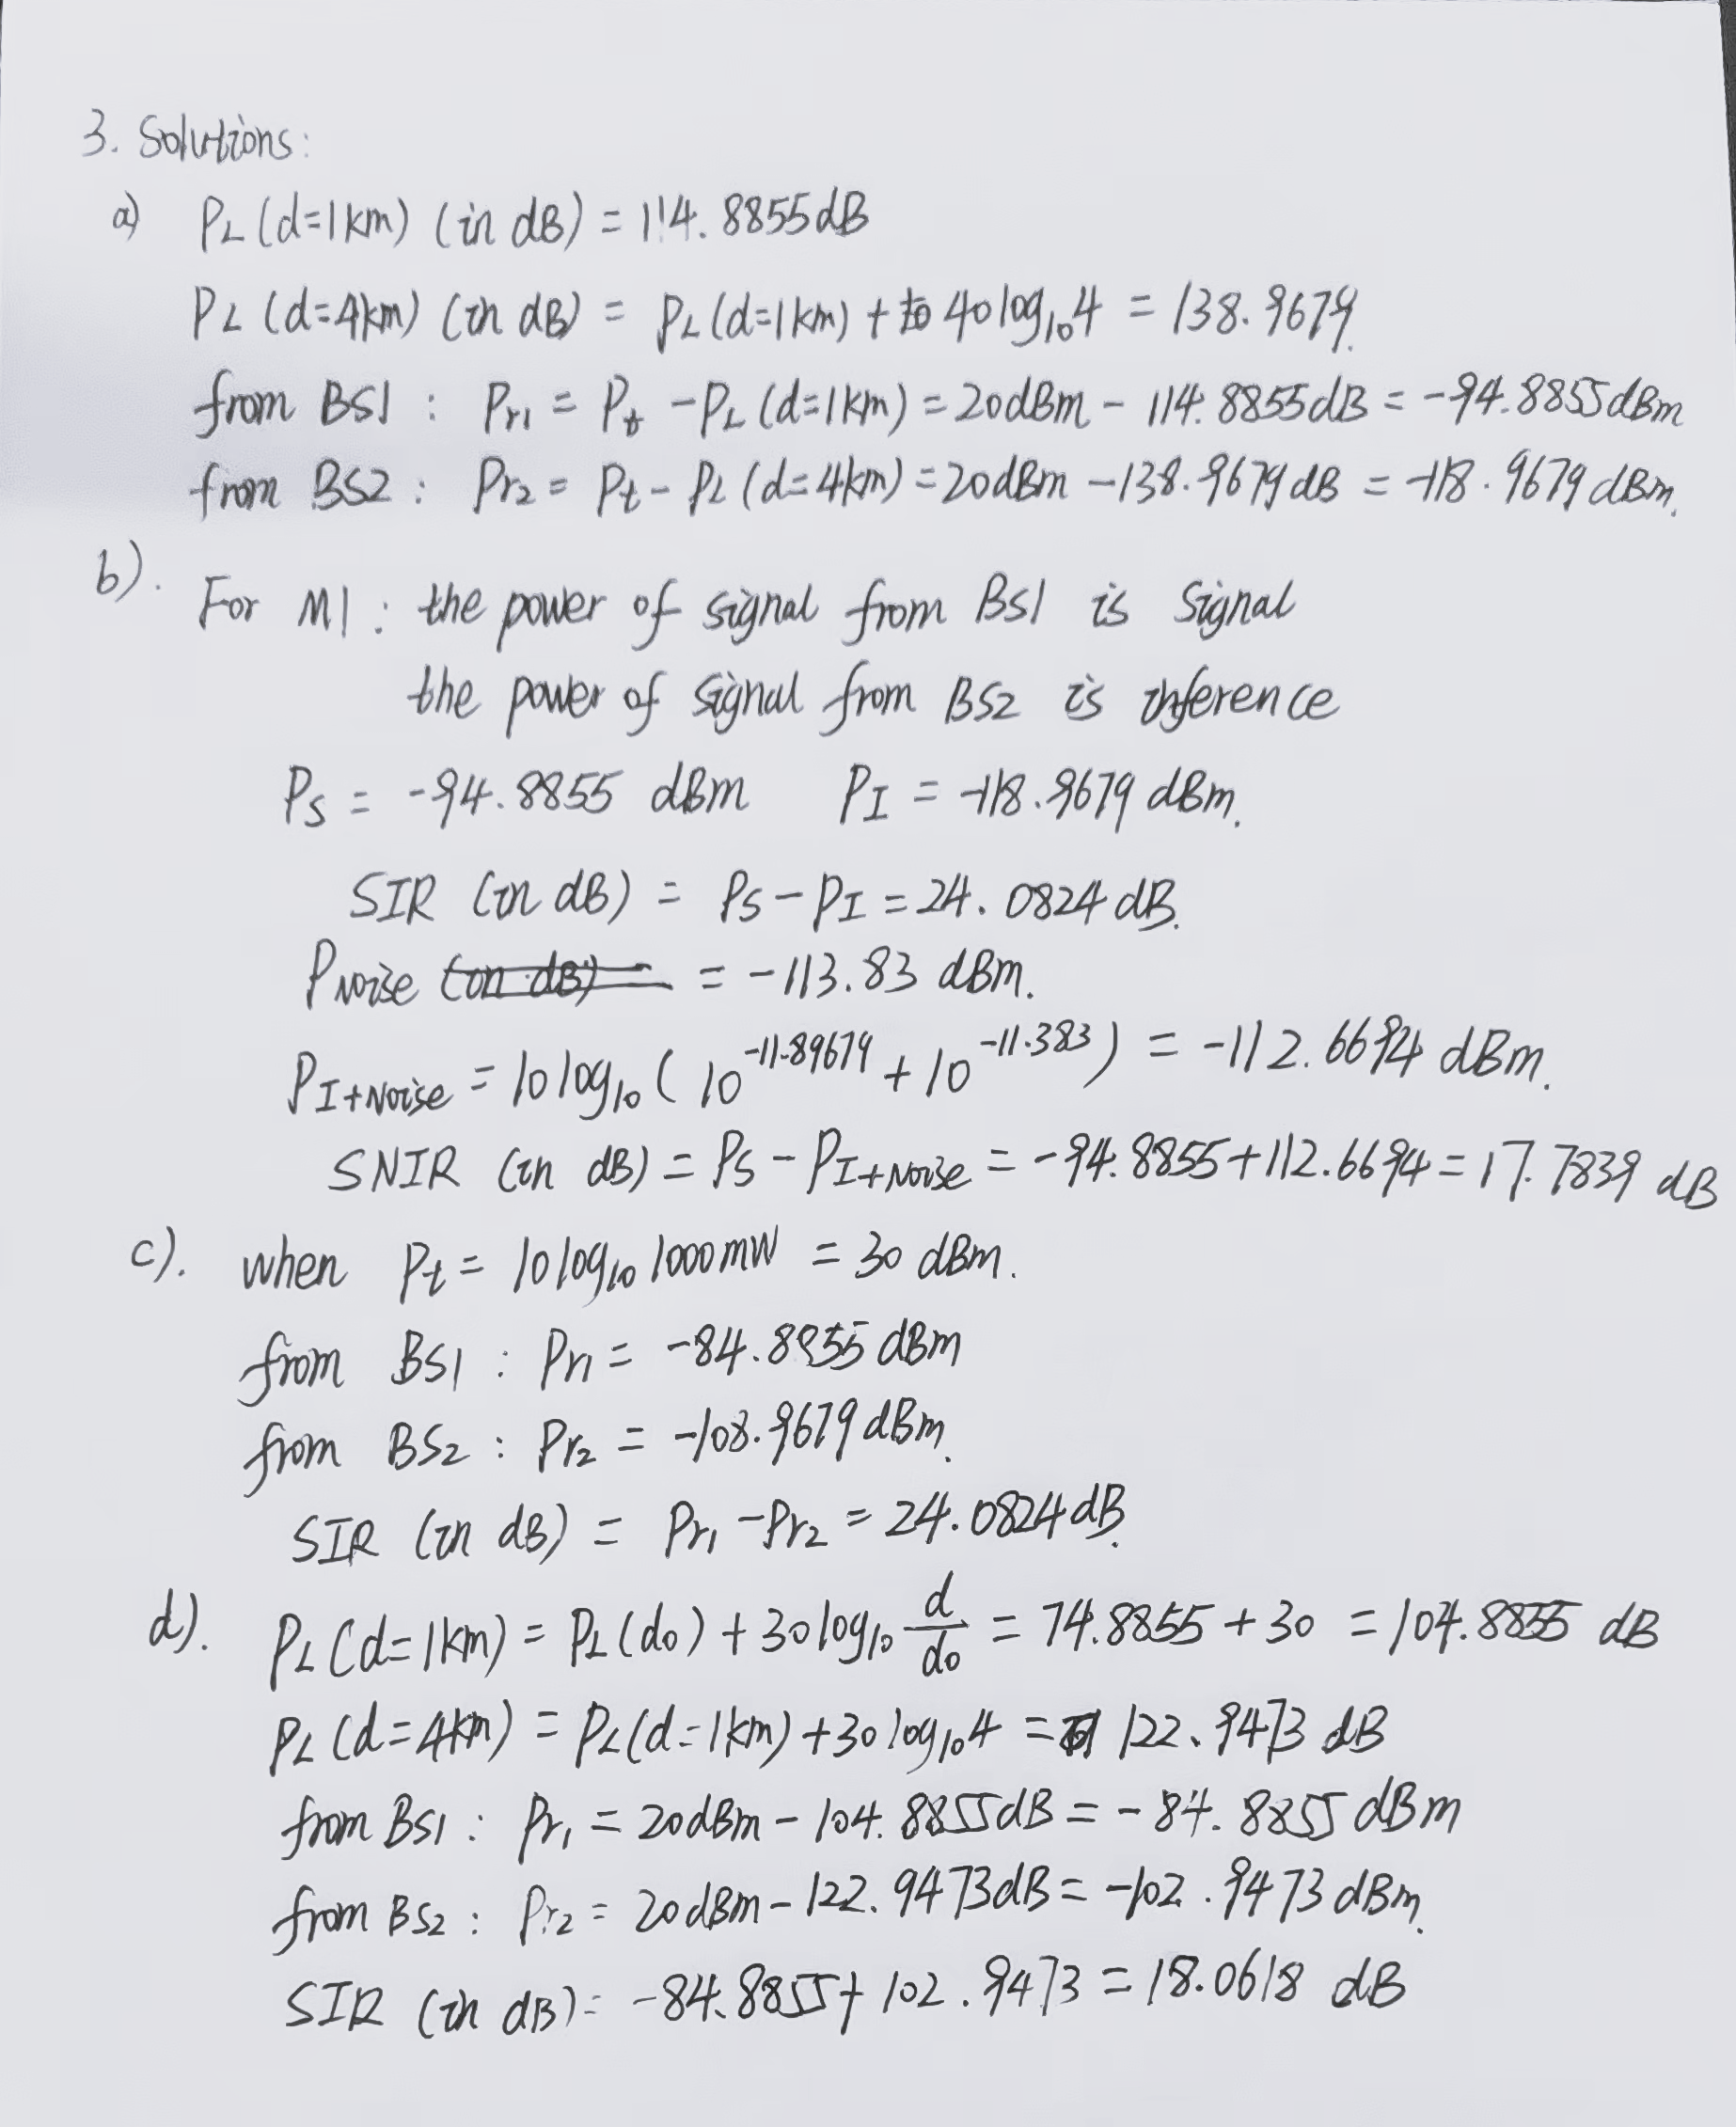 3. Solutions:
a) PL (d=1km) (in dB) = 114.8855dB
PL (d=4km) (in dB) = PL (d=1km) + 40 log₁₀4 = 138.9679.
from BS1 : Pr₁ = Pt - PL (d=1km) = 20dBm - 114.8855dB = -94.8855dBm
from BS2 : Pr₂ = Pt - PL (d=4km) = 20dBm - 138.9679dB = -118.9679dBm.
b). For M1 : the power of signal from BS1 is signal
the power of signal from BS2 is inference
Ps = -94.8855 dBm PI = -118.9679 dBm.
SIR (in dB) = Ps - PI = 24.0824 dB.
PNoise = -113.83 dBm.
PI+Noise = 10 log₁₀ ( 10^-11.89679 + 10^-11.383 ) = -112.6694 dBm.
SNIR (in dB) = Ps - PI+Noise = -94.8855+112.6694 = 17.7839 dB
c). when Pt = 10 log₁₀ 1000mW = 30 dBm.
from BS1 : Pr₁ = -84.8855 dBm
from BS2 : Pr₂ = -108.9679 dBm.
SIR (in dB) = Pr₁ - Pr₂ = 24.0824 dB.
d). PL (d=1km) = PL (d₀) + 30 log₁₀ d/d₀ = 74.8855 + 30 = 104.8855 dB
PL (d=4km) = PL (d=1km) + 30 log₁₀4 = 122.9473 dB
from BS1 : Pr₁ = 20dBm - 104.8855dB = -84.8855 dBm
from BS2 : Pr₂ = 20dBm - 122.9473dB = -102.9473 dBm.
SIR (in dB) = -84.8855 + 102.9473 = 18.0618 dB